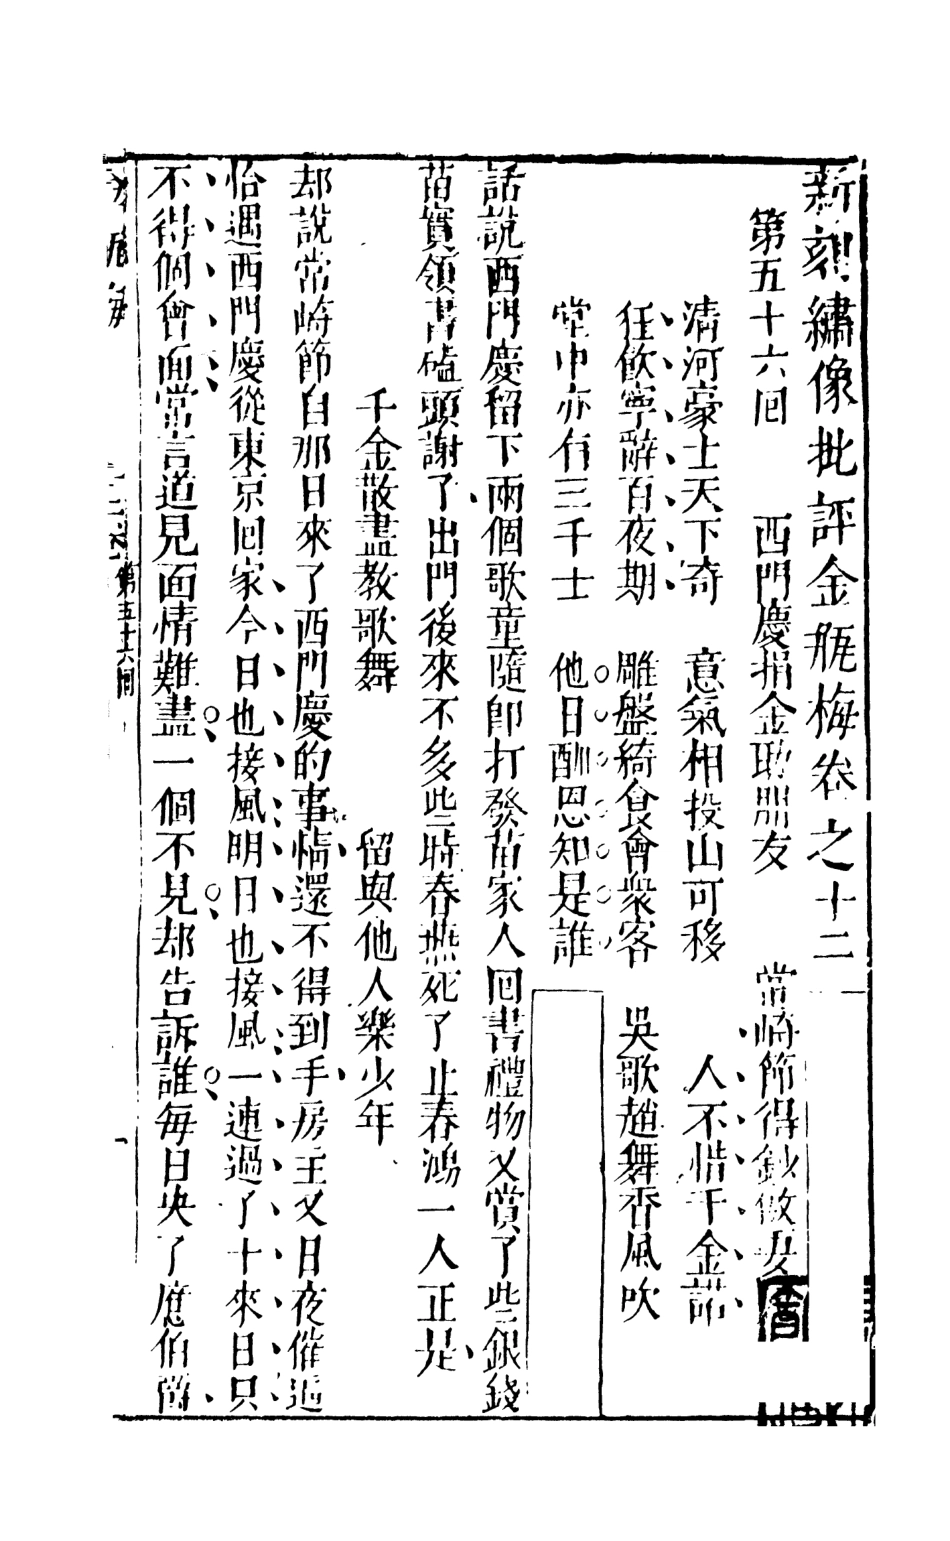 新刻繡像批評金瓶梅卷之十二
第五十六回 西門慶捐金助朋友 常峙節得鈔傲妻
清河豪士天下奇 意氣相投山可移 人不惜千金諾
狂飲寧辭百夜期 雕盤綺食會衆客 吳歌趙舞香風吹
堂中亦有三千士 他日酬恩知是誰
話說西門慶留下兩個歌童隨卽打發苗家人回書禮物又賞了些銀錢
苗實領書磕頭謝了出門後來不多些時春燕死了止春鴻一人正是
千金散盡教歌舞 留與他人樂少年
却說常峙節自那日來了西門慶的事情還不得到手房主又日夜催逼
恰遇西門慶從東京回家今日也接風明日也接風一連過了十來日只
不得個會面常言道見面情難盡一個不見却告訴誰每日央了應伯爵
第五十六回
一